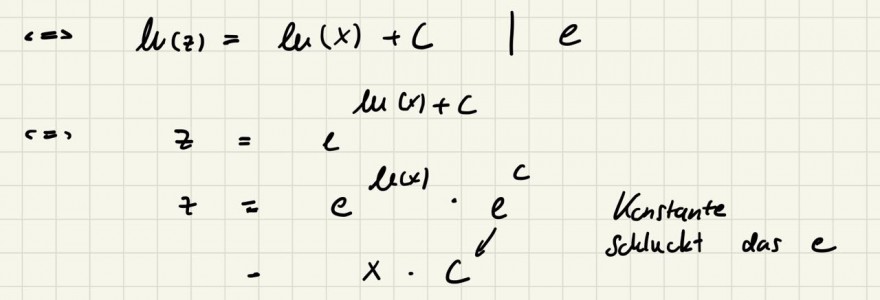 <=> ln(z) = ln(x) + C | e
<=> z = e^{ln(x) + C}
z = e^{ln(x)} · e^C Konstante
schluckt das e
= x · C